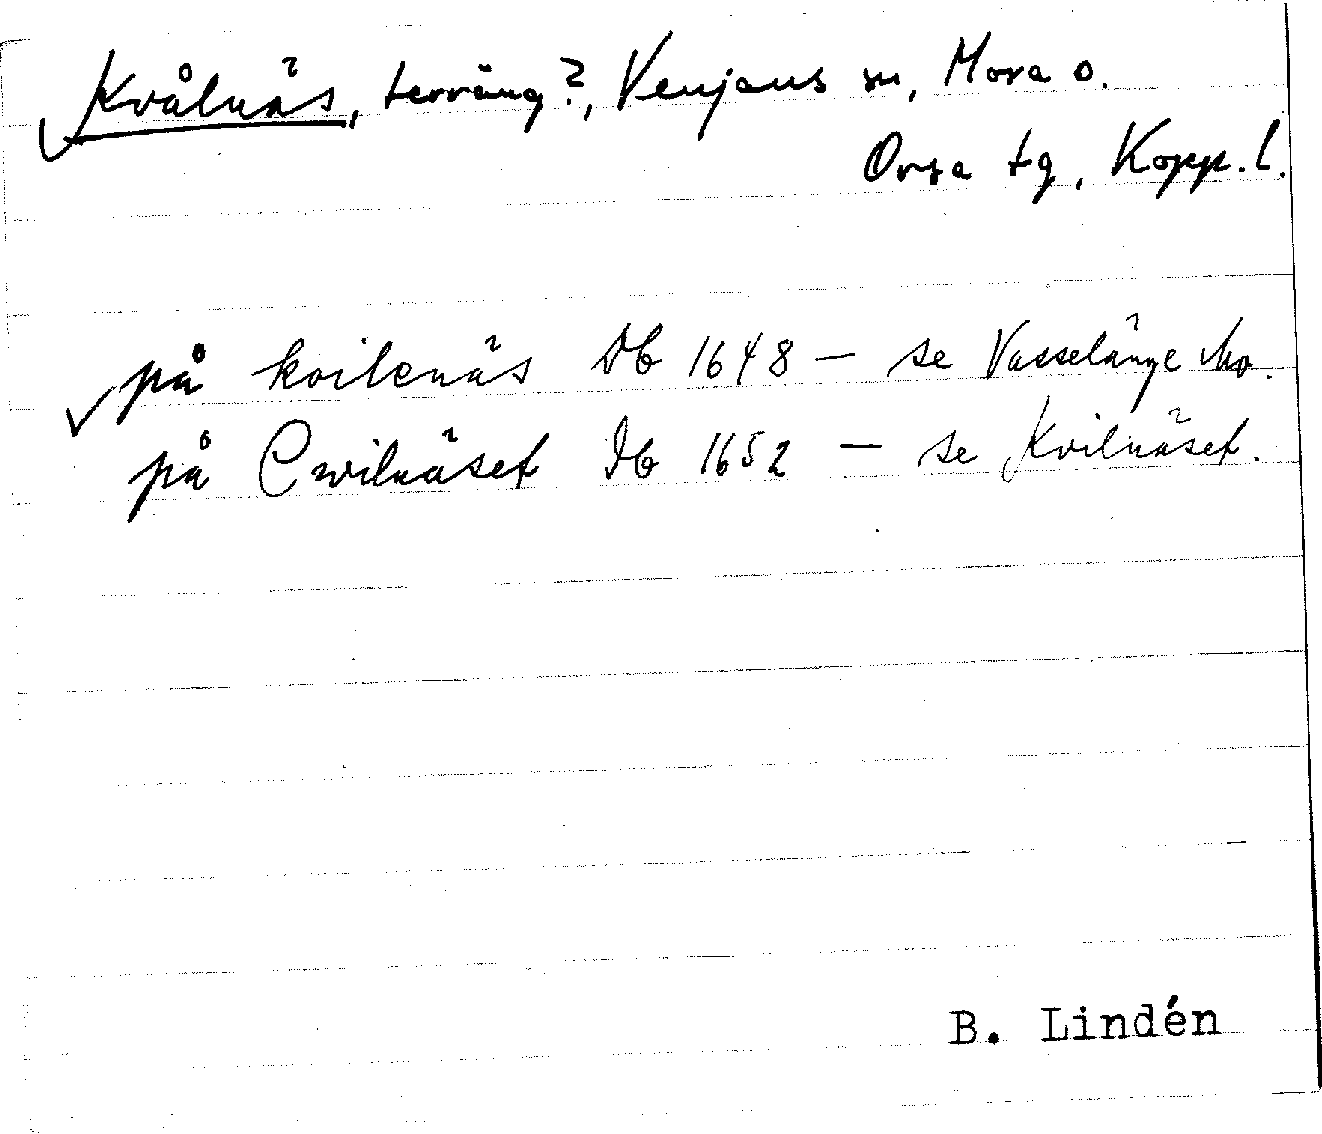 Kvålnäs, terräng?, Venjans sn, Mora o.
Orsa tg, Kopp. l.
på koilenäs Db 1648 – se Vasselänge Mo.
på Cwilnäset Ib 1652 – se Kvilnäset.
B. Lindén